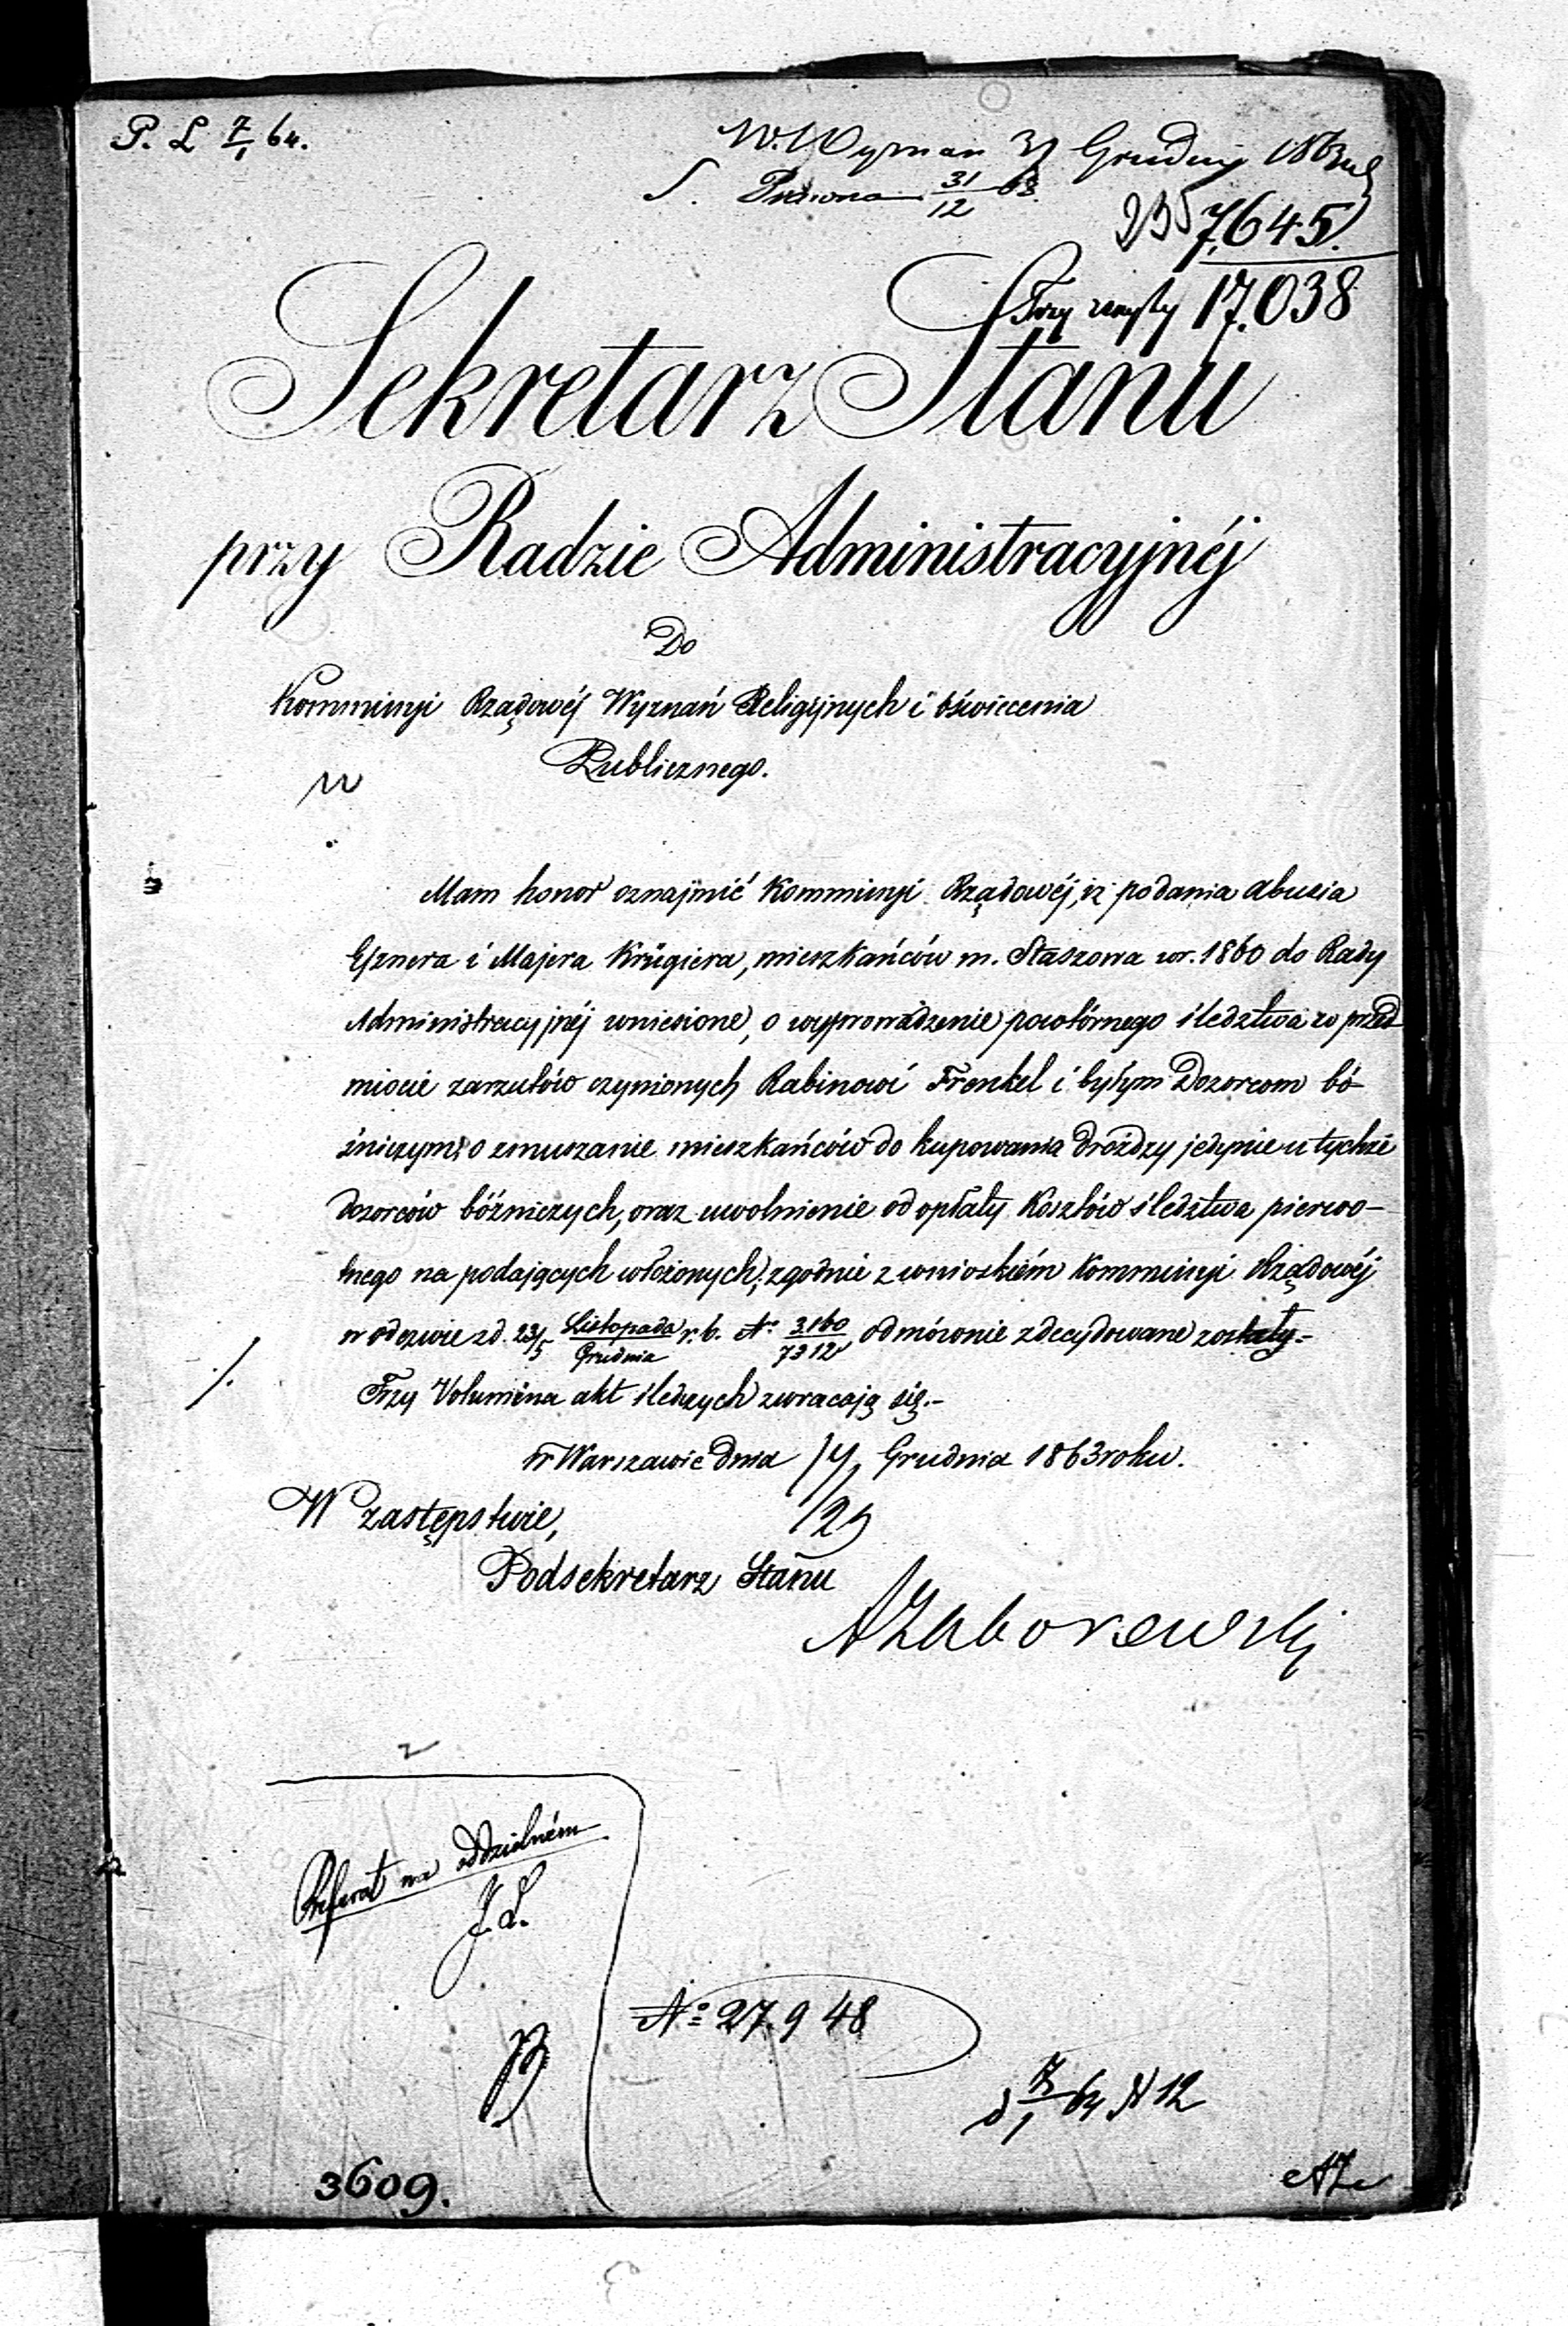 P. L 7/1 64.
W. Wyznań 31 Grudnia 1863
S. 31/12 63.
235
7,645.
Trzy zeszyty 17.038
Sekretarz Stanu
przy Radzie Administracyjnéj
Do
Kommissyi Rządowéj Wyznań Religijnych i Oświecenia
Publicznego.
Mam honor oznajmić Kommissyi Rządowéj, iż podania Abusia
Ejznera i Majera Krügiera, mieszkańców m. Staszowa w r. 1860 do Rady
Administracyjnéj wniesione, o wyprowadzenie powtórnego śledztwa w przed
miocie zarzutów czynionych Rabinowi Frenkel i byłym Dozorcom bó-
żniczym, o zmuszanie mieszkańców do kupowania drożdży jedynie u tychże
dozorców bóżniczych, oraz uwolnienie od opłaty kosztów śledztwa pierwo-
tnego na podających włożonych, zgodnie z wnioskiém Kommissyi Rządowéj
w odezwie z d. 23/5 Listopada/Grudnia r. b. No 3160/7312 odmównie zdecydowane zostały.-
Trzy Volumina akt śledczych zwracają się.-
w Warszawie dnia 17/29 Grudnia 1863 roku.
W zastępstwie,
Podsekretarz Stanu
AZaborowski
Referat na oddzielném
J. L.
No 27.948
d 7/1 64 N 12
3609.